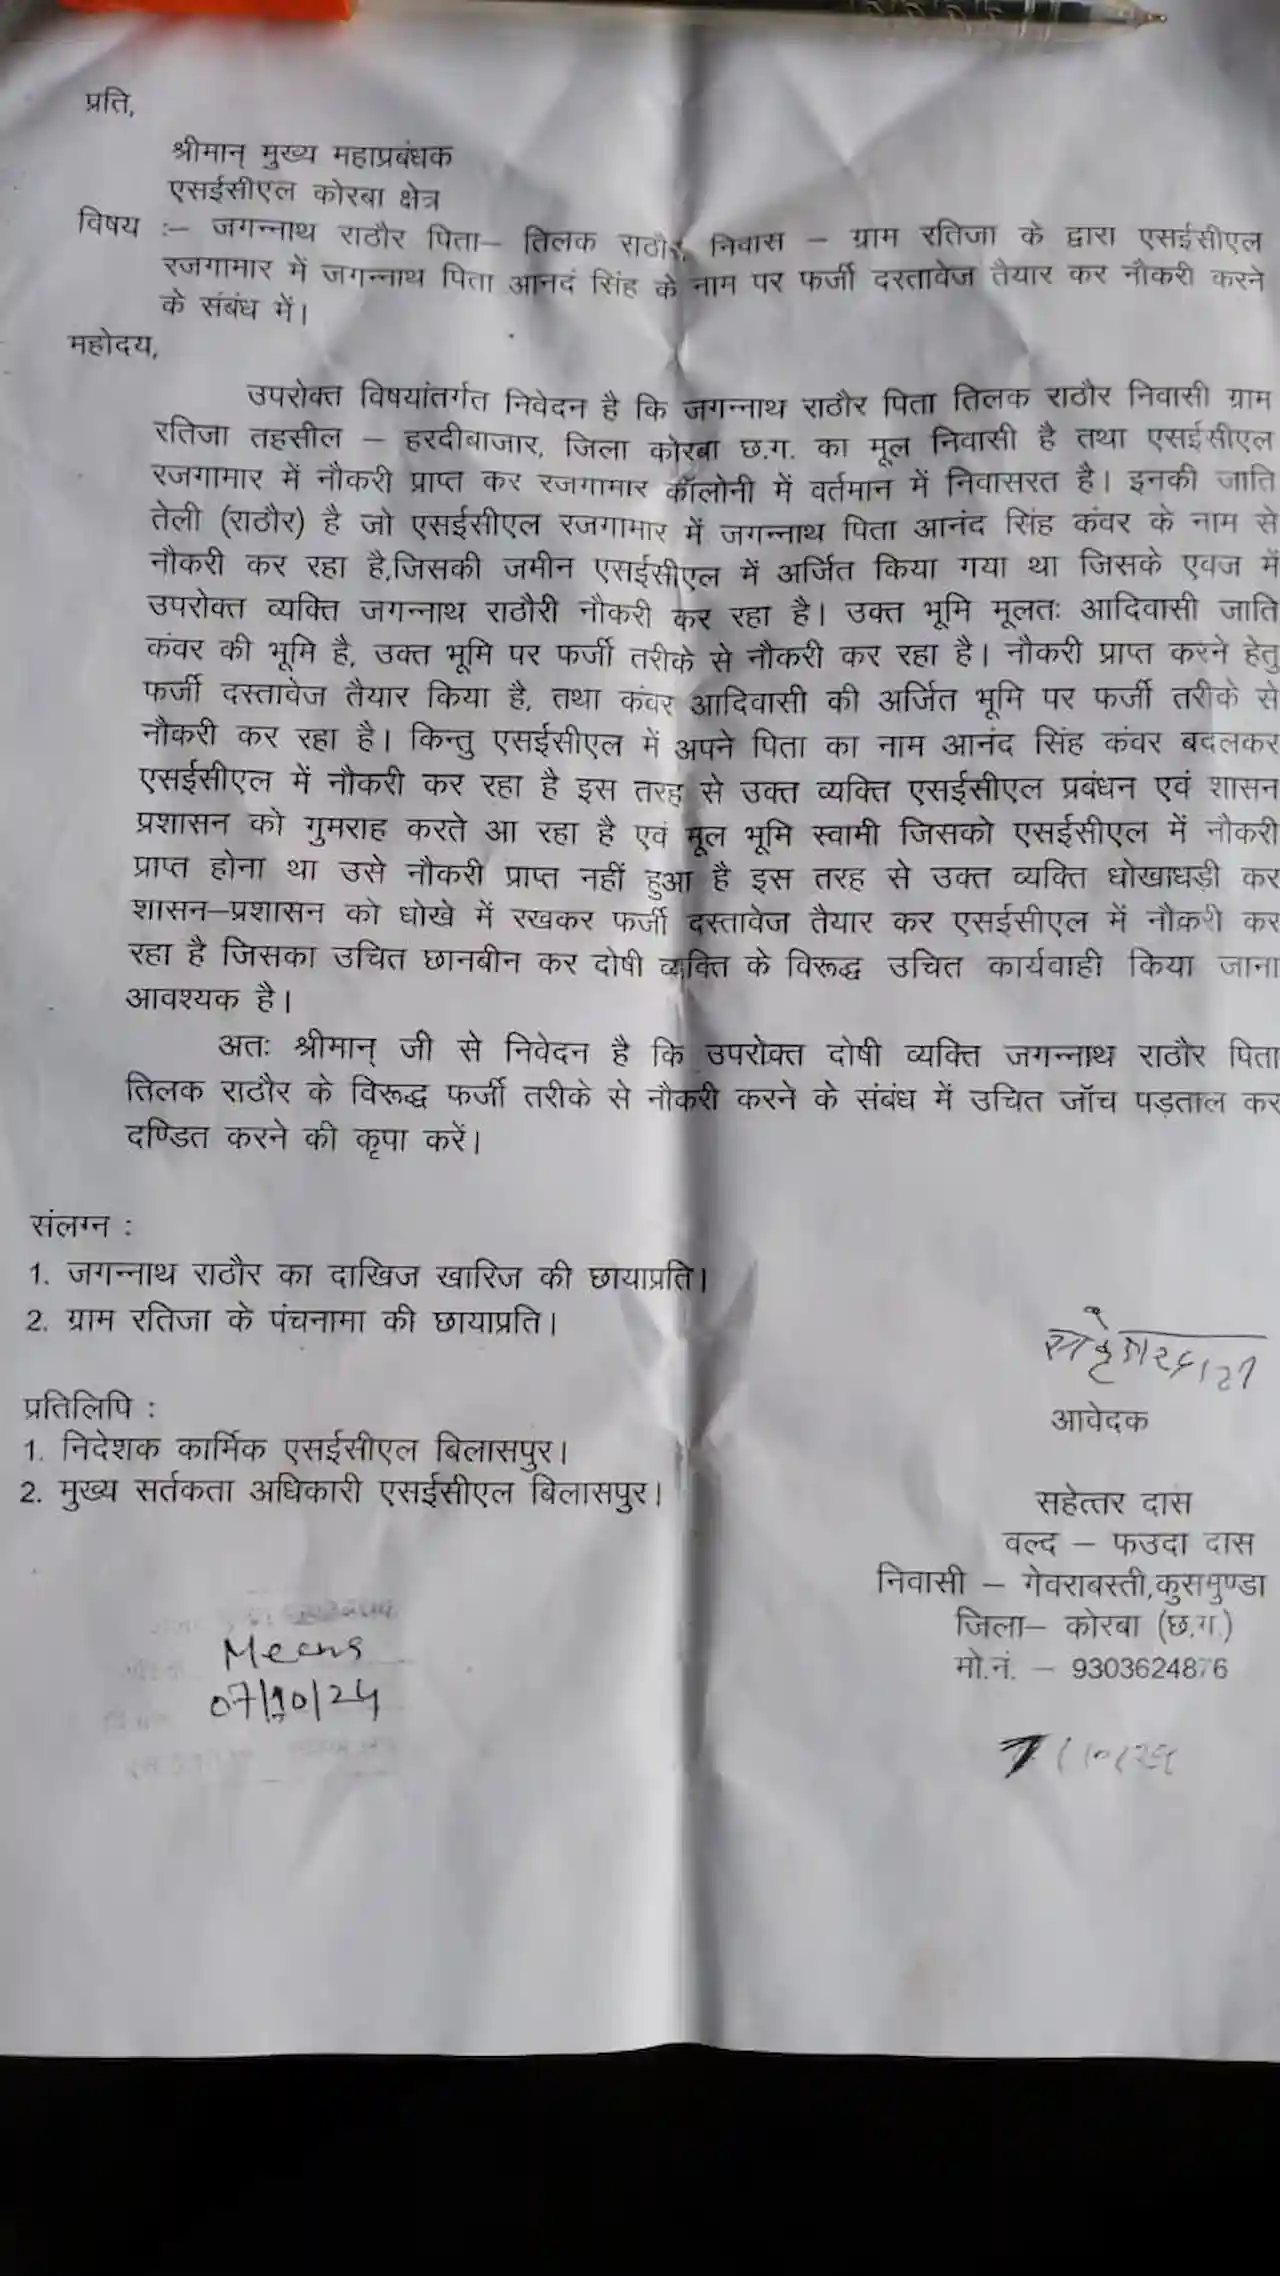 प्रति,
श्रीमान् मुख्य महाप्रबंधक
एसईसीएल कोरबा क्षेत्र
विषय :– जगन्नाथ राठौर पिता– तिलक राठौर, निवास – ग्राम रतिजा के द्वारा एसईसीएल
रजगामार में जगन्नाथ पिता आनदं सिंह के नाम पर फर्जी दस्तावेज तैयार कर नौकरी करने
के संबंध में।
महोदय,
उपरोक्त विषयांतर्गत निवेदन है कि जगन्नाथ राठौर पिता तिलक राठौर निवासी ग्राम
रतिजा तहसील – हरदीबाजार, जिला कोरबा छ.ग. का मूल निवासी है तथा एसईसीएल
रजगामार में नौकरी प्राप्त कर रजगामार कॉलोनी में वर्तमान में निवासरत है। इनकी जाति
तेली (राठौर) है जो एसईसीएल रजगामार में जगन्नाथ पिता आनंद सिंह कंवर के नाम से
नौकरी कर रहा है,जिसकी जमीन एसईसीएल में अर्जित किया गया था जिसके एवज में
उपरोक्त व्यक्ति जगन्नाथ राठौरी नौकरी कर रहा है। उक्त भूमि मूलतः आदिवासी जाति
कंवर की भूमि है, उक्त भूमि पर फर्जी तरीके से नौकरी कर रहा है। नौकरी प्राप्त करने हेतु
फर्जी दस्तावेज तैयार किया है, तथा कंवर आदिवासी की अर्जित भूमि पर फर्जी तरीके से
नौकरी कर रहा है। किन्तु एसईसीएल में अपने पिता का नाम आनंद सिंह कंवर बदलकर
एसईसीएल में नौकरी कर रहा है इस तरह से उक्त व्यक्ति एसईसीएल प्रबंधन एवं शासन
प्रशासन को गुमराह करते आ रहा है एवं मूल भूमि स्वामी जिसको एसईसीएल में नौकरी
प्राप्त होना था उसे नौकरी प्राप्त नहीं हुआ है इस तरह से उक्त व्यक्ति धोखाधड़ी कर
शासन–प्रशासन को धोखे में रखकर फर्जी दस्तावेज तैयार कर एसईसीएल में नौकरी कर
रहा है जिसका उचित छानबीन कर दोषी व्यक्ति के विरूद्ध उचित कार्यवाही किया जाना
आवश्यक है।
अतः श्रीमान् जी से निवेदन है कि उपरोक्त दोषी व्यक्ति जगन्नाथ राठौर पिता
तिलक राठौर के विरूद्ध फर्जी तरीके से नौकरी करने के संबंध में उचित जॉच पड़ताल कर
दण्डित करने की कृपा करें।
संलग्न :
1. जगन्नाथ राठौर का दाखिज खारिज की छायाप्रति।
2. ग्राम रतिजा के पंचनामा की छायाप्रति।
आवेदक
प्रतिलिपि :
1. निदेशक कार्मिक एसईसीएल बिलासपुर।
2. मुख्य सर्तकता अधिकारी एसईसीएल बिलासपुर।
सहेत्तर दास
वल्द – फउदा दास
निवासी – गेवराबस्ती,कुसमुण्डा
जिला– कोरबा (छ.ग.)
मो.नं. – 9303624876
07/10/24